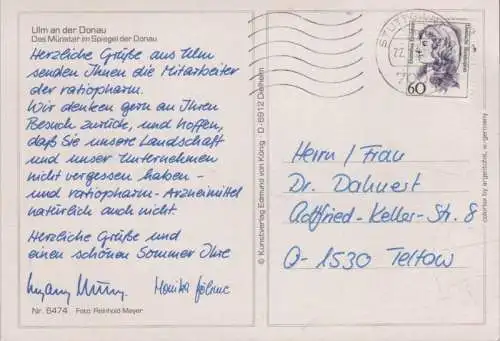 Ulm an der Donau
Das Münster im Spiegel der Donau
Herzliche Grüße aus Ulm
senden Ihnen die Mitarbeiter
der ratiopharm.
Wir denken gern an Ihren
Besuch zurück, und hoffen,
daß Sie unsere Landschaft
und unser Unternehmen
nicht vergessen haben -
und ratiopharm-Arzneimittel
natürlich auch nicht.
Herzliche Grüße und
einen schönen Sommer Ihre
Monika
Nr. 5474 Foto: Reinhold Mayer
© Kunstverlag Edmund von König · D-6912 Dielheim
60
Herrn / Frau
Dr. Dahnert
Gottfried-Keller-Str. 8
O-1530 Teltow
colorier by ergetichte, w.-germany